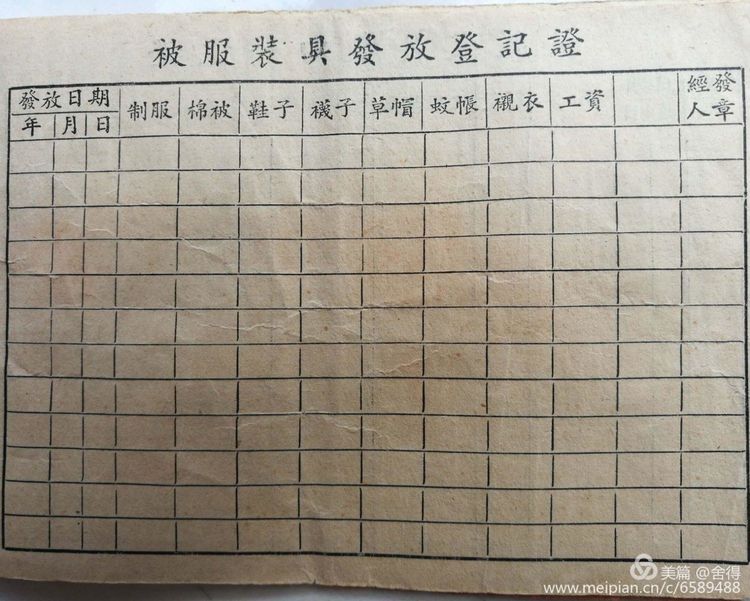 被服裝具發放登記證
發放日期 制服 棉被 鞋子 襪子 草帽 蚊帳 襯衣 工資 經發
年 月 日 人章
美篇 @舍得
www.meipian.cn/c/6589488